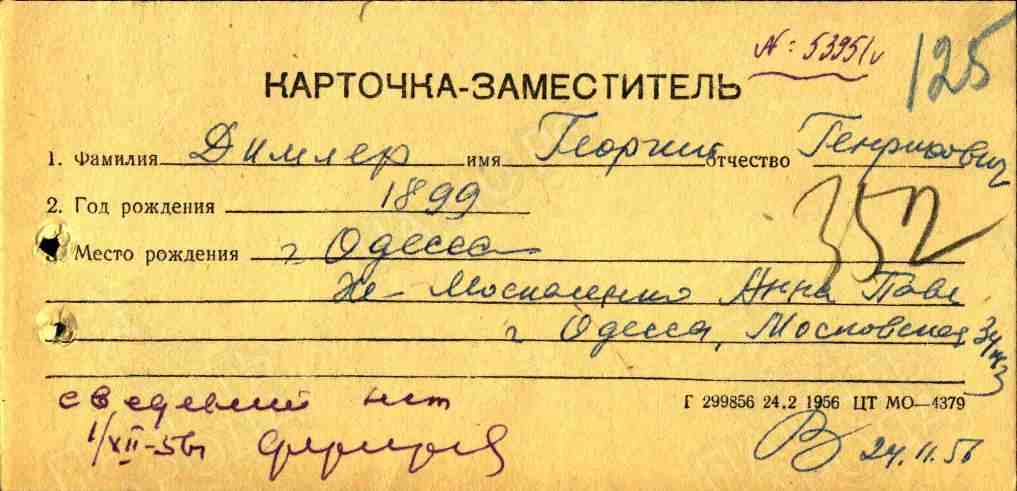 №: 53951
125
КАРТОЧКА-ЗАМЕСТИТЕЛЬ
1. Фамилия Димлер имя Георгий отчество Генрихович
2. Год рождения 1899
352
Место рождения г Одесса
Же- Москаленко Анна Павл
г Одесса, Московская
сведений нет
Г 299856 24.2 1956 ЦТ МО—4379
1/XII-56г
24.11.56